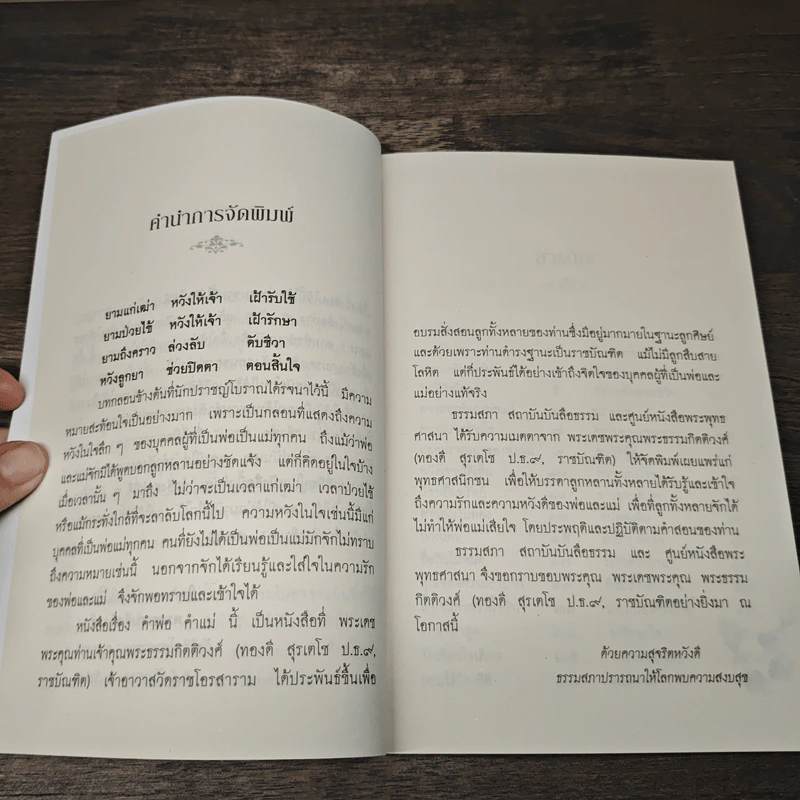 คำนำการจัดพิมพ์
ยามแก่เฒ่า หวังให้เจ้า เฝ้ารับใช้
ยามป่วยไข้ หวังให้เจ้า เฝ้ารักษา
ยามถึงคราว ล่วงลับ ดับชีวา
หวังลูกยา ช่วยปิดตา ตอนสิ้นใจ
บทกลอนข้างต้นที่นักปราชญ์โบราณได้รจนาไว้นี้ มีความ
หมายสะท้อนใจเป็นอย่างมาก เพราะเป็นกลอนที่แสดงถึงความ
หวังในใจลึก ๆ ของบุคคลผู้ที่เป็นพ่อเป็นแม่ทุกคน ถึงแม้ว่าพ่อ
และแม่จักมิได้พูดบอกลูกหลานอย่างชัดแจ้ง แต่ก็คิดอยู่ในใจบ้าง
เมื่อเวลานั้น ๆ มาถึง ไม่ว่าจะเป็นเวลาแก่เฒ่า เวลาป่วยไข้
หรือแม้กระทั่งใกล้ที่จะลาลับโลกนี้ไป ความหวังในใจเช่นนี้มีแก่
บุคคลที่เป็นพ่อแม่ทุกคน คนที่ยังไม่ได้เป็นพ่อเป็นแม่มักจักไม่ทราบ
ถึงความหมายเช่นนี้ นอกจากจักได้เรียนรู้และใส่ใจในความรัก
ของพ่อและแม่ จึงจักพอทราบและเข้าใจได้
หนังสือเรื่อง คำพ่อ คำแม่ นี้ เป็นหนังสือที่ พระเดช
พระคุณท่านเจ้าคุณพระธรรมกิตติวงศ์ (ทองดี สุรเตโช ป.ธ.๙,
ราชบัณฑิต) เจ้าอาวาสวัดราชโอรสาราม ได้ประพันธ์ขึ้นเพื่อ
อบรมสั่งสอนลูกทั้งหลายของท่านซึ่งมีอยู่มากมายในฐานะลูกศิษย์
และด้วยเพราะท่านดำรงฐานะเป็นราชบัณฑิต แม้ไม่มีลูกสืบสาย
โลหิต แต่ก็ประพันธ์ได้อย่างเข้าถึงจิตใจของบุคคลผู้ที่เป็นพ่อและ
แม่อย่างแท้จริง
ธรรมสภา สถาบันบันลือธรรม และศูนย์หนังสือพระพุทธ
ศาสนา ได้รับความเมตตาจาก พระเดชพระคุณพระธรรมกิตติวงศ์
(ทองดี สุรเตโช ป.ธ.๙, ราชบัณฑิต) ให้จัดพิมพ์เผยแพร่แก่
พุทธศาสนิกชน เพื่อให้บรรดาลูกหลานทั้งหลายได้รับรู้และเข้าใจ
ถึงความรักและความหวังดีของพ่อและแม่ เพื่อที่ลูกทั้งหลายจักได้
ไม่ทำให้พ่อแม่เสียใจ โดยประพฤติและปฏิบัติตามคำสอนของท่าน
ธรรมสภา สถาบันบันลือธรรม และ ศูนย์หนังสือพระ
พุทธศาสนา จึงขอกราบขอบพระคุณ พระเดชพระคุณ พระธรรม
กิตติวงศ์ (ทองดี สุรเตโช ป.ธ.๙, ราชบัณฑิตอย่างยิ่งมา ณ
โอกาสนี้
ด้วยความสุจริตหวังดี
ธรรมสภาปรารถนาให้โลกพบความสงบสุข